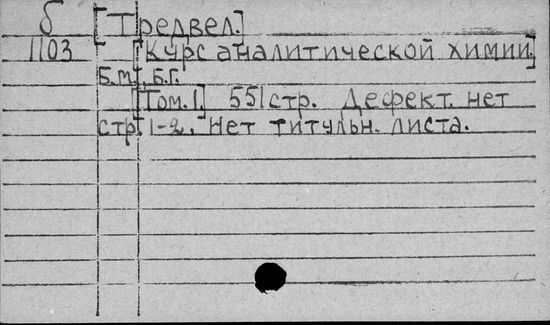 б [Тредвел.]
1103 [Курс аналитической химии.]
Б.м., Б.Г.
[Том. 1.] 551 стр. Дефект. нет
стр. 1-2. Нет титульн. листа.